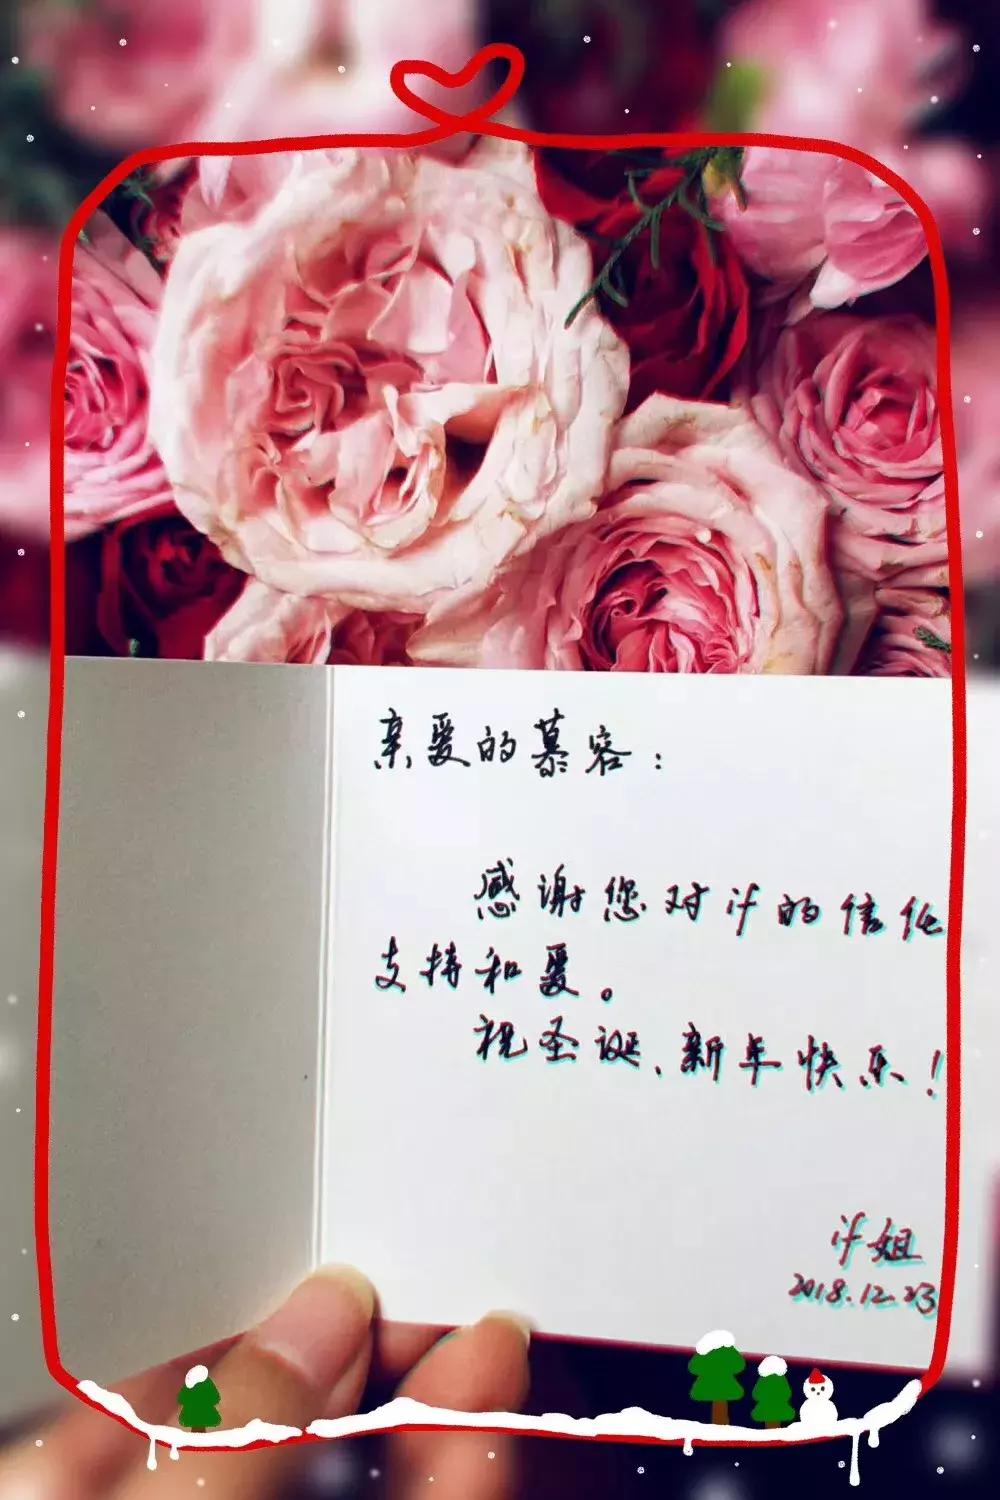 亲爱的慕容：
感谢您对if的信任
支持和爱。
祝圣诞、新年快乐！
if姐
2018.12.23